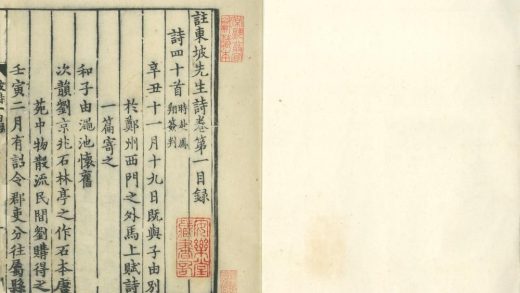 註東坡先生詩卷第一目錄
詩四十首 時赴鳳翔簽判
辛丑十一月十九日既與子由別
於鄭州西門之外馬上賦詩
一篇寄之
和子由澠池懷舊
次韻劉京兆石林亭之作石本唐
苑中物散流民間劉購得之
壬寅二月有詔令郡吏分往屬縣